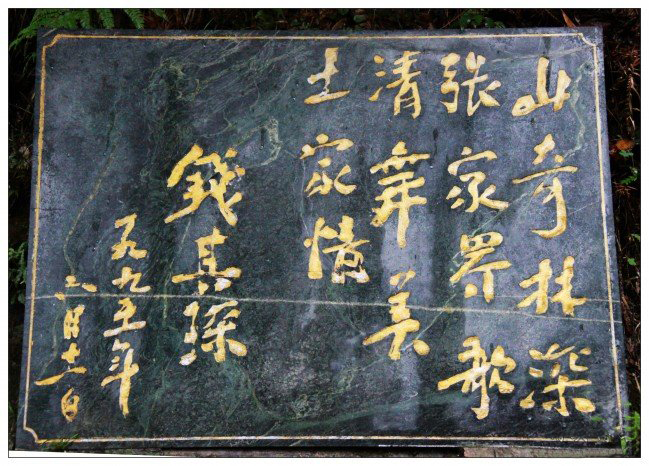 山奇林深
张家界歌
清舞美
土家情
錢其琛
一九九五年
月十一日